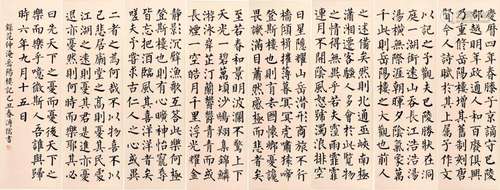 慶曆四年春滕子京謫守巴陵
郡越明年政通人和百廢具
興乃重修岳陽樓增其舊制刻唐
賢今人詩賦於其上屬予作文
以記之予觀夫巴陵勝狀在洞
庭一湖銜遠山吞長江浩浩湯
湯橫無際涯朝暉夕陰氣象萬
千此則岳陽樓之大觀也前人
之述備矣然則北通巫峽南極
瀟湘遷客騷人多會於此覽物
之情得無異乎若夫霪雨霏霏
連月不開陰風怒號濁浪排空
日星隱耀山岳潛形商旅不行
檣傾楫摧薄暮冥冥虎嘯猿啼
登斯樓也則有去國懷鄉憂讒
畏譏滿目蕭然感極而悲者矣
至若春和景明波瀾不驚上下
天光一碧萬頃沙鷗翔集錦鱗
游泳岸芷汀蘭郁郁青青而或
長煙一空皓月千里浮光耀金
靜影沉璧漁歌互答此樂何極
登斯樓也則有心曠神怡寵辱
皆忘把酒臨風其喜洋洋者矣
嗟夫予嘗求古仁人之心或異
二者之為何哉不以物喜不以
己悲居廟堂之高則憂其民處
江湖之遠則憂其君是進亦憂
退亦憂然則何時而樂耶其必
曰先天下之憂而憂後天下之
樂而樂乎噫微斯人吾誰與歸
時六年九月十五日
錄范仲淹岳陽樓記己丑春溥儒書